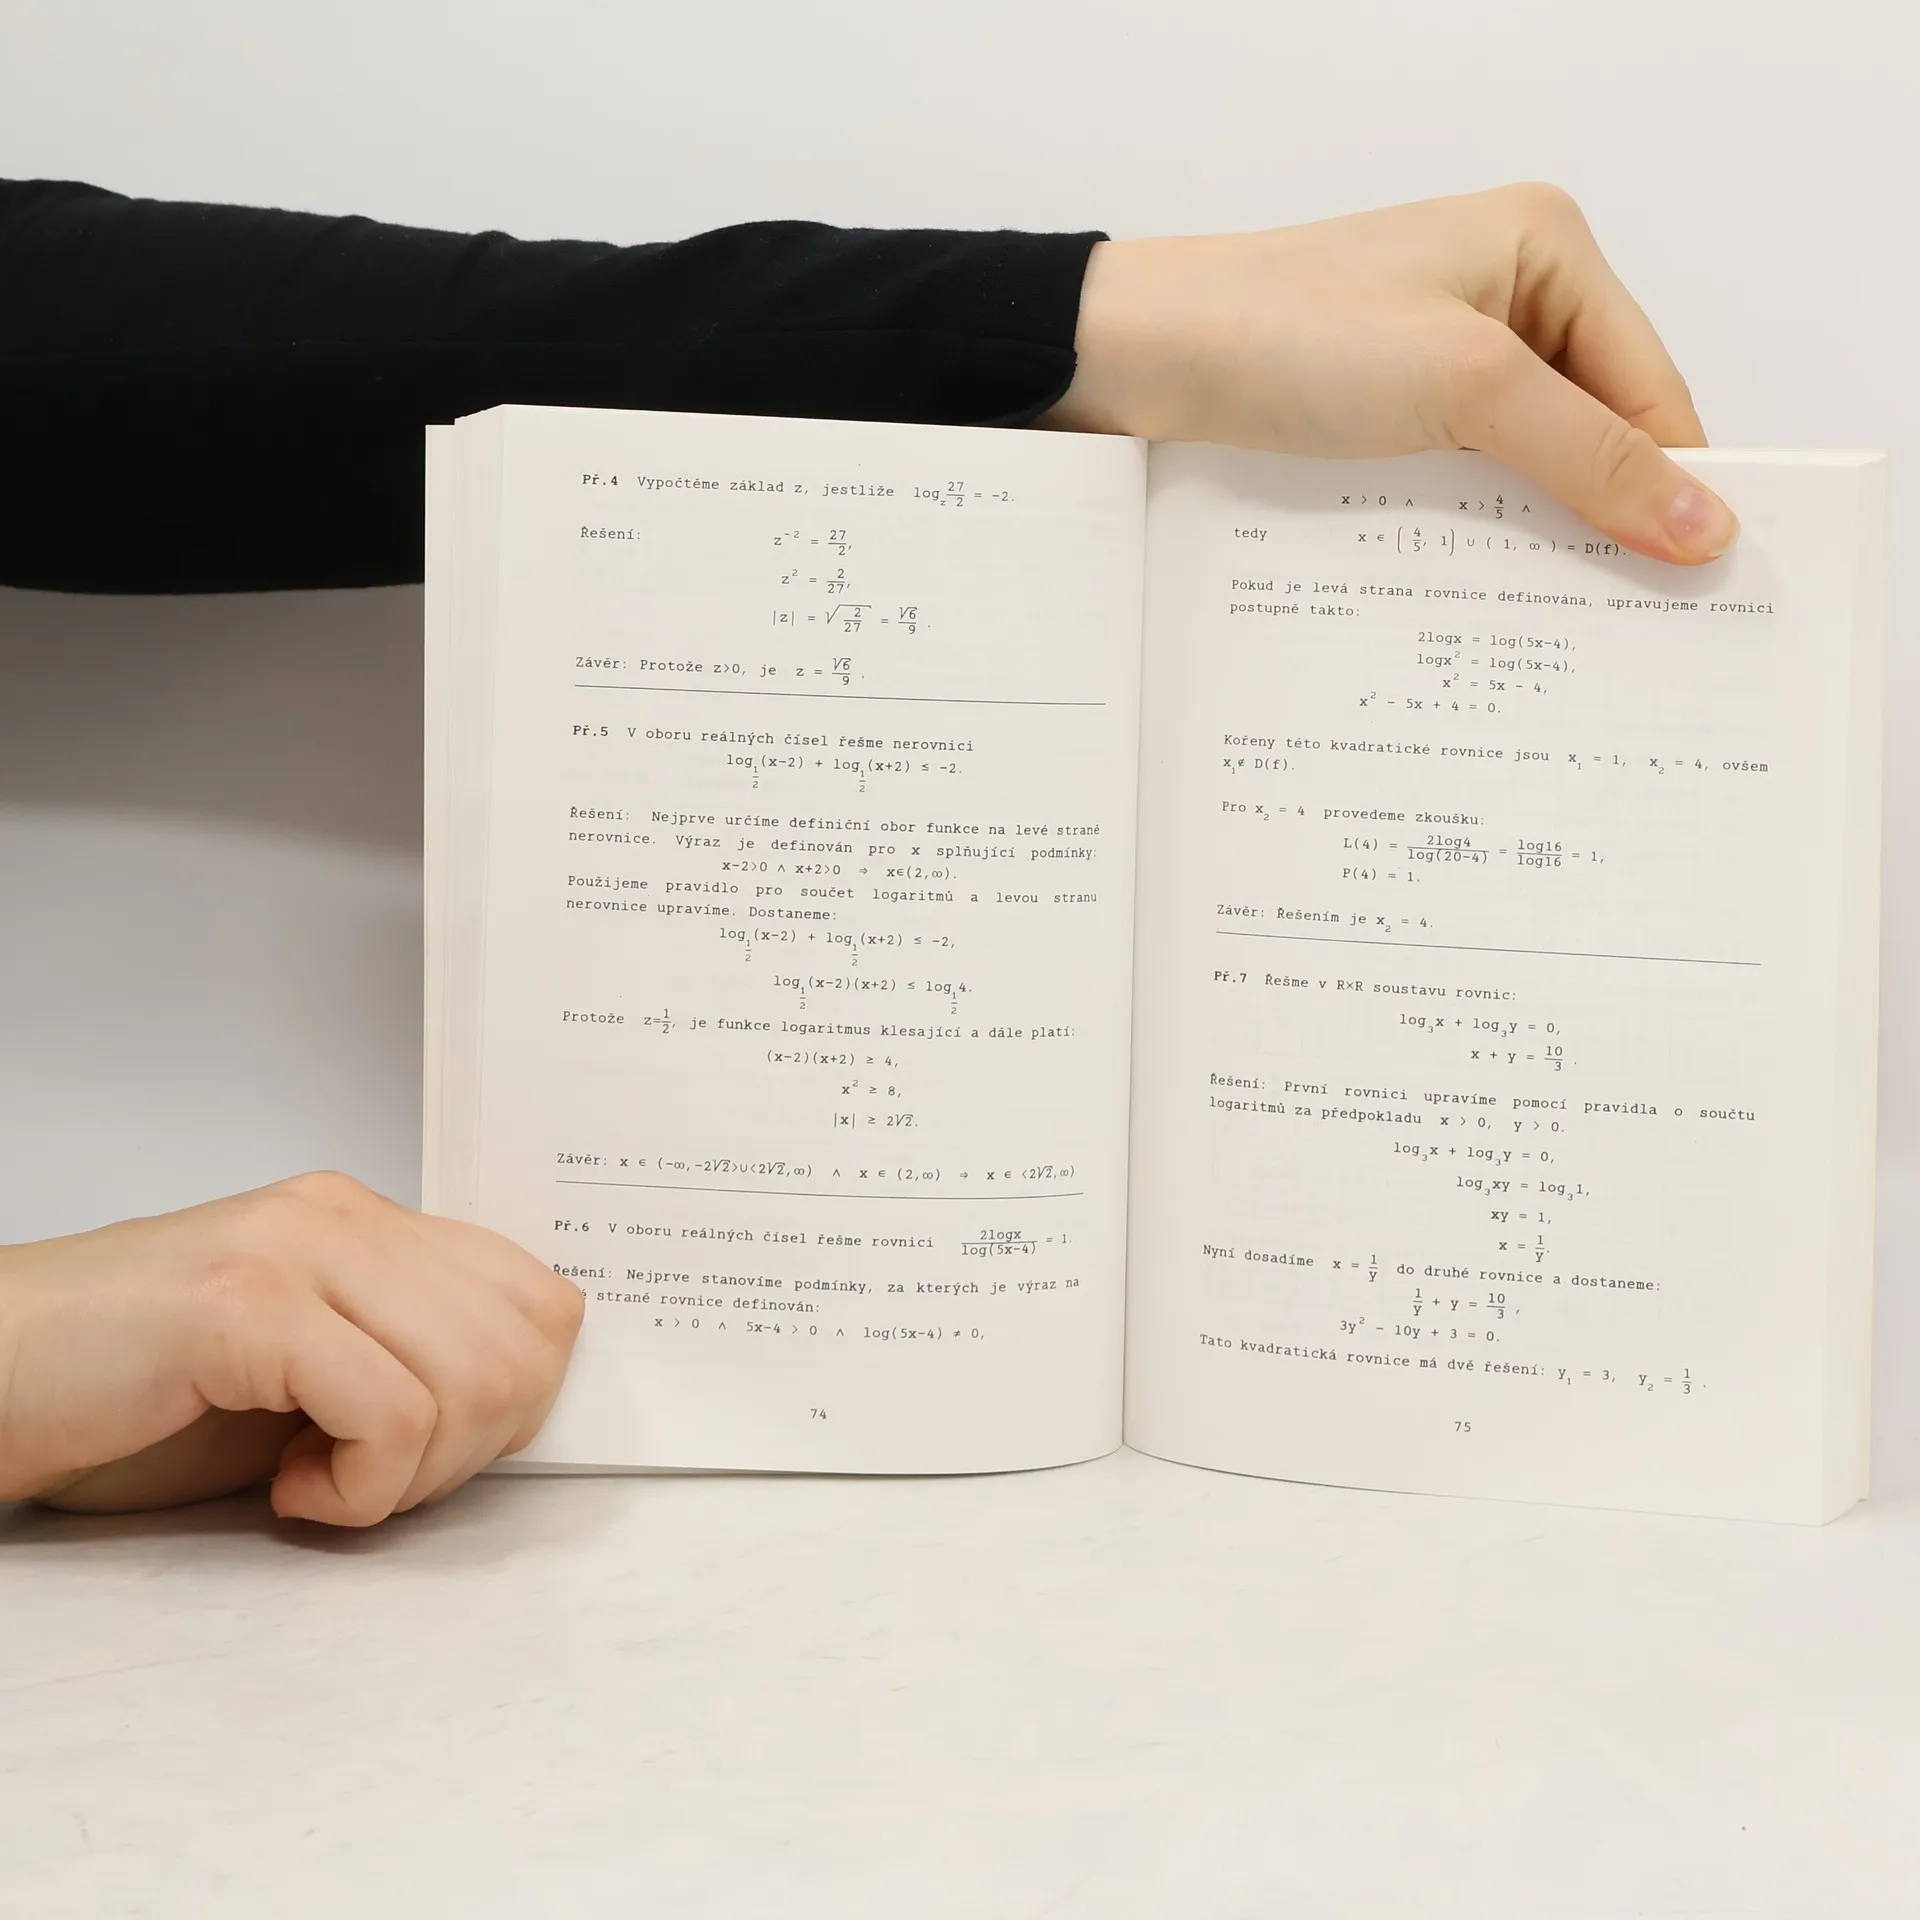 Př.4 Vypočtěme základ z, jestliže log_z 27/2 = -2.
Řešení: z^-2 = 27/2,
z^2 = 2/27,
|z| = √(2/27) = √6/9 .
Závěr: Protože z>0, je z = √6/9 .
Př.5 V oboru reálných čísel řešme nerovnici
log_1/2 (x-2) + log_1/2 (x+2) ≤ -2.
Řešení: Nejprve určíme definiční obor funkce na levé straně
nerovnice. Výraz je definován pro x splňující podmínky:
x-2>0 ∧ x+2>0 ⇒ x∈(2,∞).
Použijeme pravidlo pro součet logaritmů a levou stranu
nerovnice upravíme. Dostaneme:
log_1/2 (x-2) + log_1/2 (x+2) ≤ -2,
log_1/2 (x-2)(x+2) ≤ log_1/2 4.
Protože z=1/2, je funkce logaritmus klesající a dále platí:
(x-2)(x+2) ≥ 4,
x^2 ≥ 8,
|x| ≥ 2√2.
Závěr: x ∈ (-∞,-2√2>∪<2√2,∞) ∧ x ∈ (2,∞) ⇒ x ∈ <2√2,∞)
Př.6 V oboru reálných čísel řešme rovnici 2logx/log(5x-4) = 1.
Řešení: Nejprve stanovíme podmínky, za kterých je výraz na
straně rovnice definován:
x > 0 ∧ 5x-4 > 0 ∧ log(5x-4) ≠ 0,
74
x > 0 ∧ x > 4/5 ∧
tedy x ∈ (4/5, 1) ∪ ( 1, ∞ ) = D(f).
Pokud je levá strana rovnice definována, upravujeme rovnici
postupně takto:
2logx = log(5x-4),
logx^2 = log(5x-4),
x^2 = 5x - 4,
x^2 - 5x + 4 = 0.
Kořeny této kvadratické rovnice jsou x_1 = 1, x_2 = 4, ovšem
x_1∉ D(f).
Pro x_2 = 4 provedeme zkoušku:
L(4) = 2log4/log(20-4) = log16/log16 = 1,
P(4) = 1.
Závěr: Řešením je x_2 = 4.
Př.7 Řešme v R×R soustavu rovnic:
log_3 x + log_3 y = 0,
x + y = 10/3 .
Řešení: První rovnici upravíme pomocí pravidla o součtu
logaritmů za předpokladu x > 0, y > 0.
log_3 x + log_3 y = 0,
log_3 xy = log_3 1,
xy = 1,
x = 1/y.
Nyní dosadíme x = 1/y do druhé rovnice a dostaneme:
1/y + y = 10/3 ,
3y^2 - 10y + 3 = 0.
Tato kvadratická rovnice má dvě řešení: y_1 = 3, y_2 = 1/3 .
75